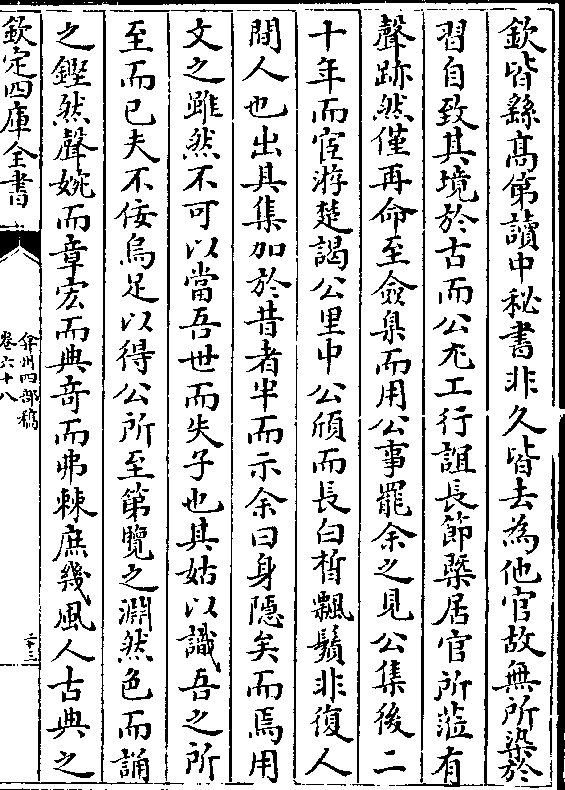 欽皆繇高第讀中秘書非久皆去為他官故無所染於
習自致其境於古而公尤工行誼長節槩居官所蒞有
聲跡然僅再命至僉臬而用公事罷余之見公集後二
十年而宦游楚謁公里中公頎而長白晳飄鬚非復人
間人也出其集加於昔者半而示余曰身隱矣而焉用
文之雖然不可以當吾世而失子也其姑以識吾之所
至而已夫不佞烏足以得公所至第覽之淵然色而誦
之鏗然聲婉而章宏而典奇而弗棘庶幾風人古典之
欽定四庫全書
弇州四部稿
卷六十八
二十三